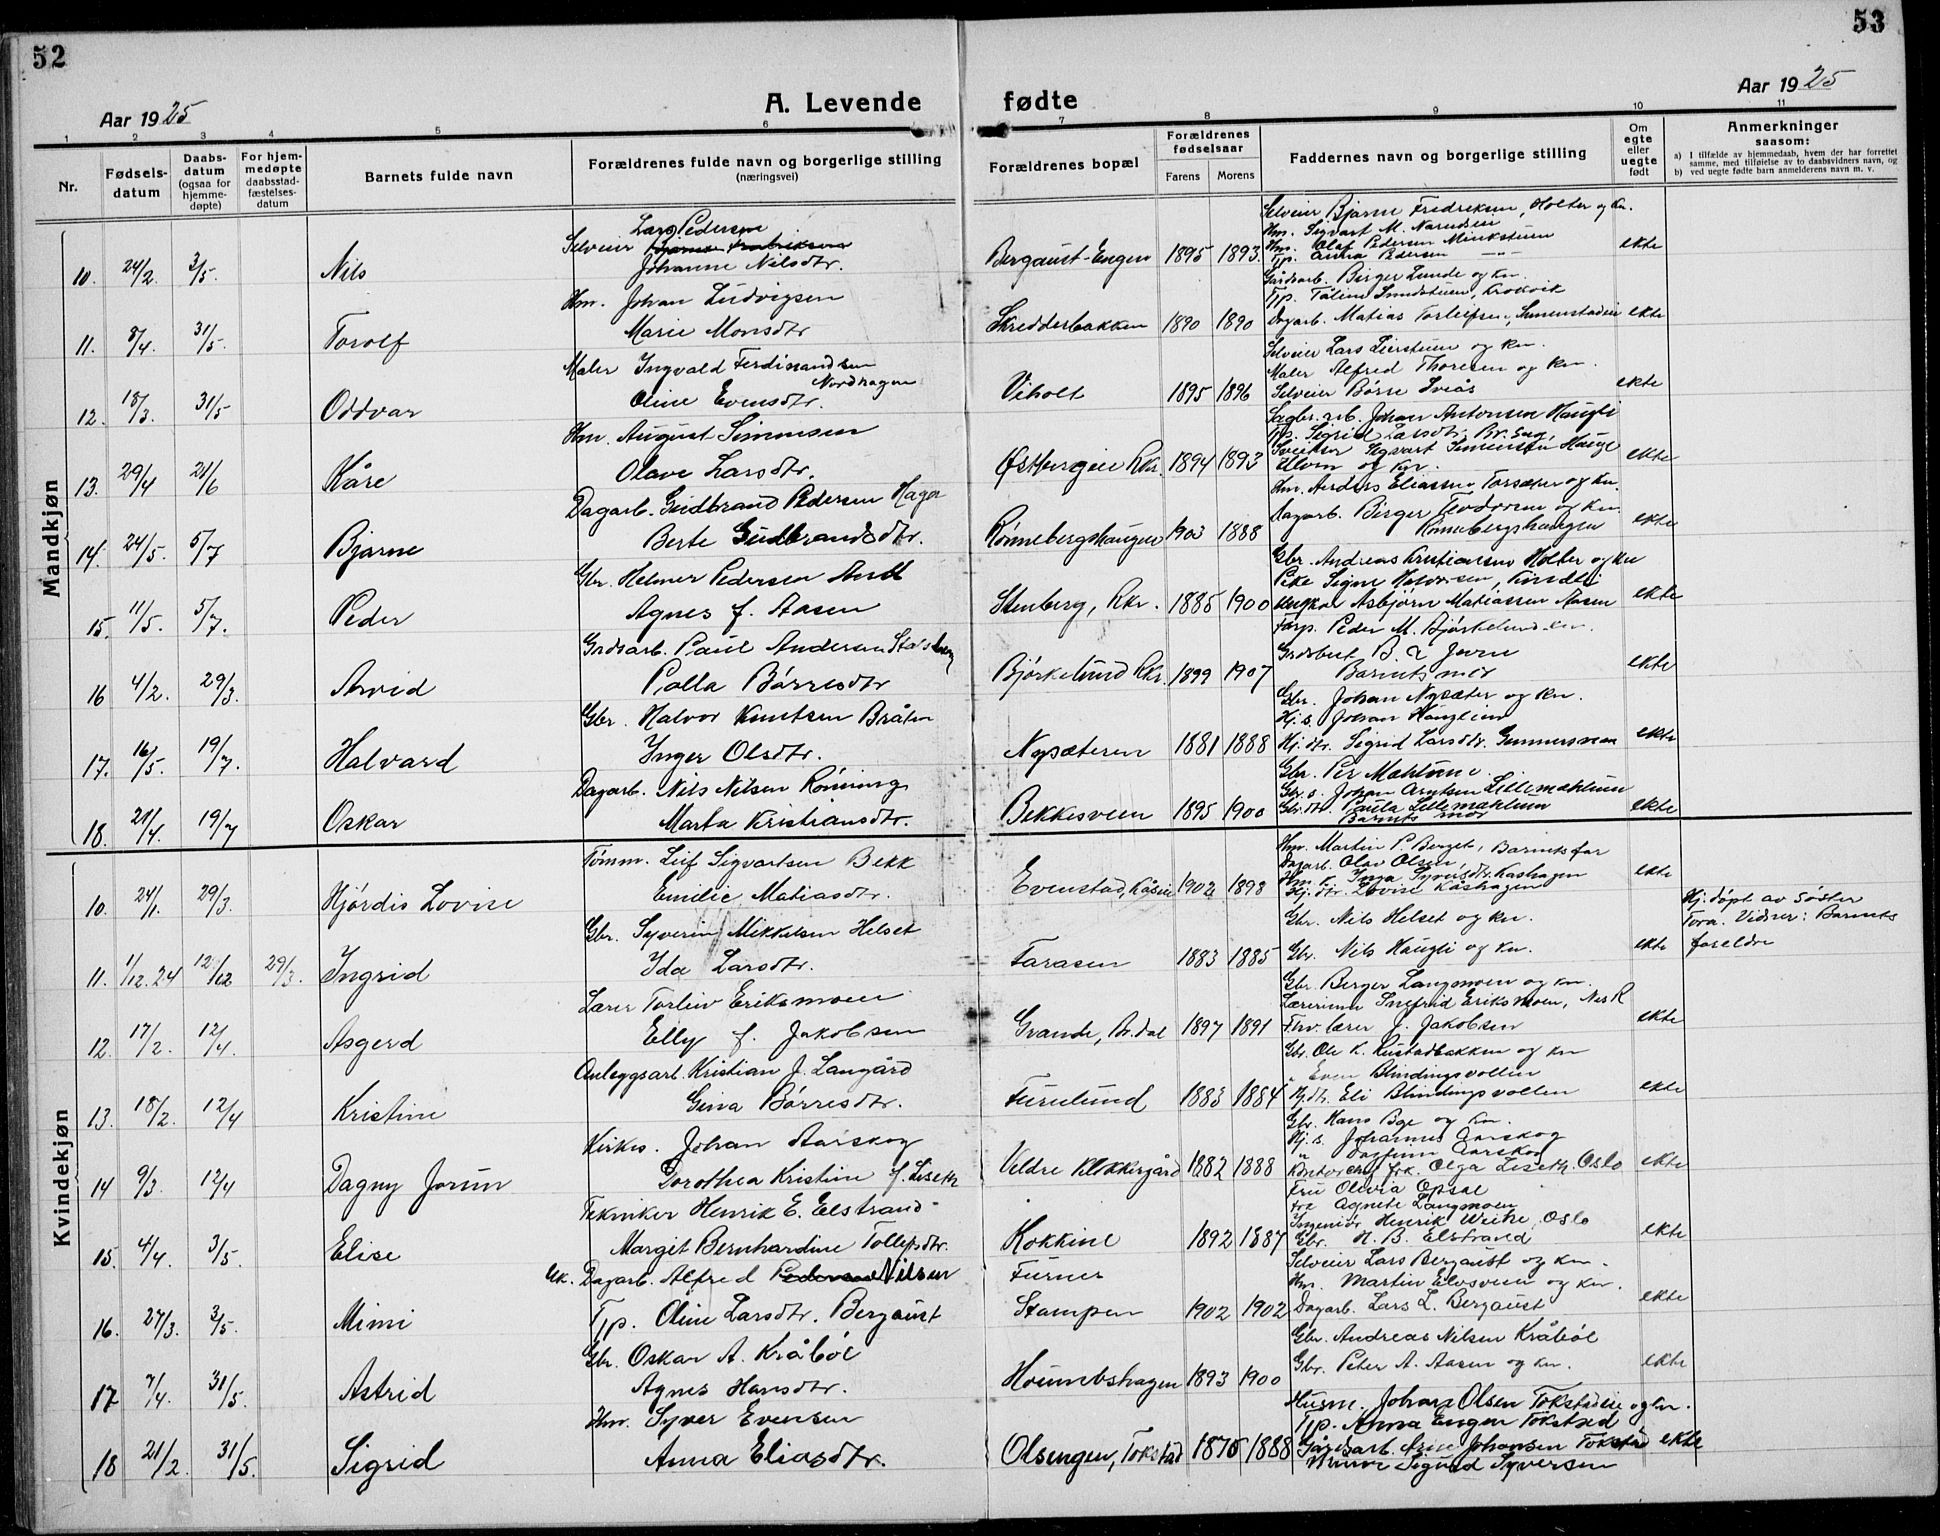 52
53
Aar 1925
A. Levende
fødte
Aar 1925
1 2 3 4 5 6 7 8 9 10 11
Nr.
Fødsels-datum
Daabs-datum (ogsaa for hjemme-døpte)
For hjem-medøpte daabsstad-fæstelses-datum
Barnets fulde navn
Forældrenes fulde navn og borgerlige stilling (næringsvei)
Forældrenes bopæl
Forældrenes fødselsaar
Farens
Morens
Faddernes navn og borgerlige stilling
Om egte eller uegte født
Anmerkninger saasom:
a) I tilfælde av hjemmedaab, hvem der har forrettet samme, med tilføielse av to daabsvidners navn, og
b) ved uegte fødte barn anmelderens navn m. v.
Mandkjøn
Lars Pedersen
Selveier Bjarne Fredriksen
10. 24/2. 3/5. Nils
Johanne Nilsdtr.
Bergaust-Engen 1895 1893.
Selveier Bjarne Fredriksen, Holter og kn.
Hm. Sigvart M.
Hm. Olaf Pedersen
Tjp. Anna Pedersen
ekte
Hm. Johan Ludvigsen
11. 8/4. 31/5. Torolf
Marie Monsdtr
Skredderbakken 1890 1890
Gårdsarb. Birger Lunde og kn.
Tjp.
Dagarb. Matias Torleifsen,
ekte
Maler Ingvald Ferdinandsen
Nordhagen
12. 18/3. 31/5 Oddvar
Oline Evensdtr.
Viholt 1895 1896
Selveier Lars og kn.
Maler Alfred Thoresen og kn.
Selveier Børre
ekte
Hm. August Simensen
13. 29/4 21/6 Kåre
Olave Larsdtr.
Rkr. 1894 1893
Johan Antonsen Haugli
Tjp. Sigrid Larsdtr.
og kn.
Hm. Anders Eliassen Torsæter og kn.
ekte
Dagarb. Gudbrand Pedersen Hagen
14. 24/5. 5/7 Bjarne
Berte Gudbrandsdtr.
Rønnebergshaugen 1903 1888
Dagarb. Birger Teodorsen og kn
Rønnebergshaugen
ekte
Gbr. Helmer Pedersen
15. 11/5. 5/7. Peder
Agnes f. Aasen
Stenberg, Rkr. 1885 1900
Gbr. Andreas Kristiansen Holter og kn
Pike Signe Halvorsen,
Ungkar Asbjørn Matiassen Aasen
ekte
Grdsarb. Paul Andersen
16 4/2. 29/3. Arvid
Palla Børresdtr
Bjørkelund Rkr. 1899 1907
Peder M. Bjørkelund
Barnets mor
ekte
Gbr. Halvor Knutsen Bråten
17. 16/5. 19/7. Halvard
Inger Olsdtr.
Nysæteren 1881 1888
Gbr. Johan Nysæter og kn.
Hj. s. Johan
Hj. dtr. Sigrid Larsdtr. Gunnersveen
ekte
Dagarb. Nils Nilsen Rønning
18. 21/4. 19/7 Oskar
Marta Kristiansdtr.
Bekkesveen 1895 1900
Gbr. Per Mahlum.
Gbr. s. Johan Lillemahlum
Gbr. dtr. Paula Lillemahlum
Barnets mor
ekte
Kvindekjøn
Tømm. Leif Sigvartsen Bekk
10. 24/1. 29/3. Hjørdis Lovise
Emilie Matiasdtr.
Evenstad, 1902 1898
Hm. Martin P. Berget, Barnets far
Dagarb. Olav Olsen,
Inga
Hj. dtr. Lovise Kåshagen
ekte
Gbr. Syverin Mikkelsen Helset
11. 1/12.24 12/12 29/3. Ingrid
Ida Larsdtr.
Tarasen 1883 1885
Gbr. Nils Helset og kn.
Gbr. Nils Haugli og kn.
ekte
Hj. døpt av søster
Tora. Vidner: Barnets
foreldre
Lærer Torleiv Eriksmoen
12. 17/2. 12/4. Asgerd
Elly f. Jakobsen
1897 1891
Gbr. Berger Langmoen og kn.
Lærerinne Snefrid Eriksmoen, Nes R
Frv. lærer J. Jakobsen
ekte
Anleggsarb. Kristian J. Langård
13. 18/2. 12/4 Kristine
Gina Børresdtr.
Furulund 1883 1884
Gbr. Ole K. Rustadbakken og kn
" Even Blindingsvollen
Eli Blindingsvollen
ekte
Kirkes. Johan Aarskog
14 9/3. 12/4 Dagny Jorun
Dorothea Kristine f. Liseth
Veldre Klokkergård 1882 1888
Gbr. Hans Bye og kn.
Hj. s. Johannes Aarskog
" Dagfinn Aarskog
frk. Olga Liseth, Oslo
ekte
Tekniker Henrik E. Elstrand
15. 4/4. 3/5. Elise
Margit Bernhardine Tollefsdtr.
Kokkine 1892 1887
Fru Olivia Opsal
Agnete Langmoen
Ingeniør Henrik Weihe, Oslo
Gbr. H. B. Elstrand
ekte
Uk. Dagarb. Alfred Pedersen Nilsen
Furnes
16. 27/3. 3/5. Mimi
Tjp. Oline Larsdtr. Bergaust
Stampen 1902 1902
Selveier Lars Bergaust og kn.
Hm. Martin Elvsveen og kn.
Dagarb. Lars L. Bergaust
ekte
Gbr. Oskar A. Kråbøl
17 7/4. 31/5. Astrid
Agnes Hansdtr.
1893 1900
Gbr. Andreas Nilsen Kråbøl
Gbr. Peter A. Aasen og kn.
ekte
Hm. Syver Evensen
18 21/2. 31/5. Sigrid
Anna Eliasdtr.
Olsengen, Tokstad 1875 1888
Husm. Johan Olsen Tokstadeie og kn.
Tjp. Anna Engen Tokstad
Gårdsarb. Arne Johansen Tokstad
Sigurd Syversen
ekte